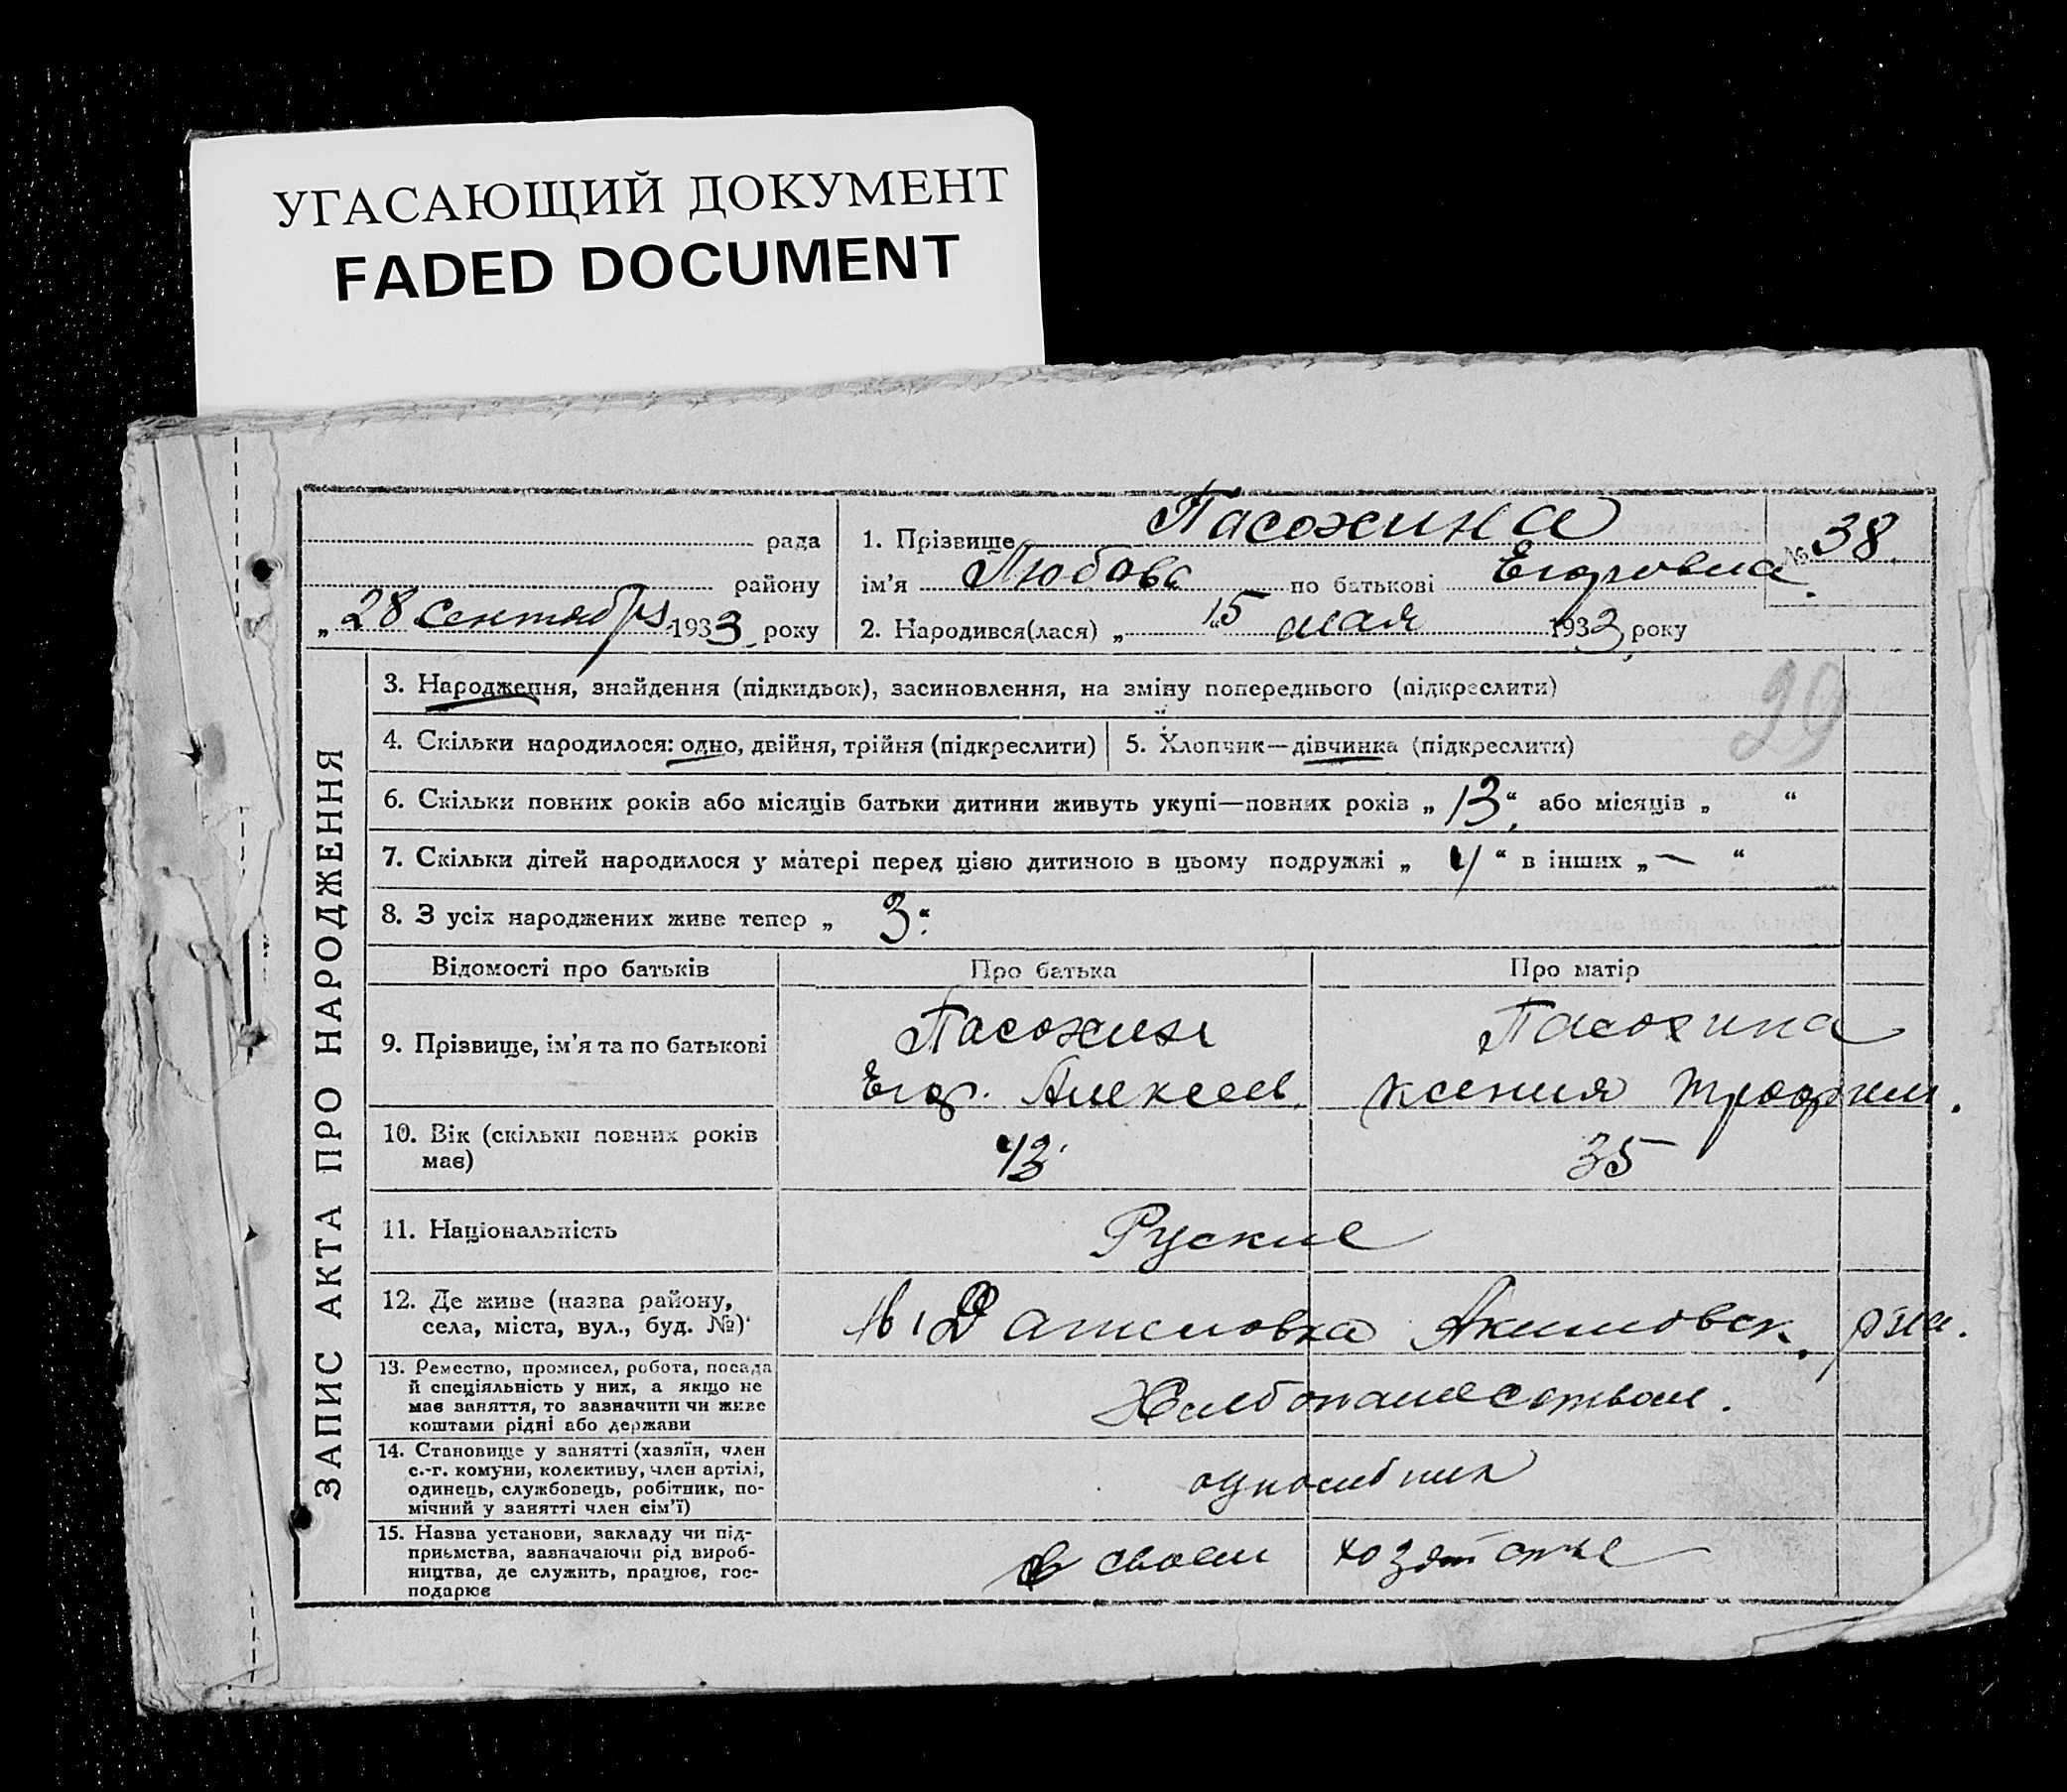 УГАСАЮЩИЙ ДОКУМЕНТ
FADED DOCUMENT
рада
району
„ 28 сентября 1933 року
1. Прізвище Пасохина
ім'я Любовь по батькові Егоровна
№ 38
2. Народився(лася) „ 15 " мая 1933 року
29
ЗАПИС АКТА ПРО НАРОДЖЕННЯ
3. Народження, знайдення (підкидьок), засиновлення, на зміну попереднього (підкреслити)
4. Скільки народилося: одно, двійня, трійня (підкреслити)
5. Хлопчик—дівчинка (підкреслити)
6. Скільки повних років або місяців батьки дитини живуть укупі—повних років „ 13 “ або місяців „ “
7. Скільки дітей народилося у матері перед цією дитиною в цьому подружжі „ 4 “ в інших „ — “
8. З усіх народжених живе тепер „ 3 “
Відомості про батьків
Про батька
Про матір
9. Прізвище, ім'я та по батькові
Пасохин
Егор. Алексеев.
Пасохина
Ксения Трофим.
10. Вік (скільки повних років
має)
43
35
11. Національність
Руские
12. Де живе (назва району,
села, міста, вул., буд. №)
Акимовск. р-на.
13. Ремество, промисел, робота, посада
й спеціяльність у них, а якщо не
має заняття, то зазначити чи живе
коштами рідні або держави
Хлебопашеством.
14. Становище у занятті (хазяїн, член
с.-г. комуни, колективу, член артілі,
одинець, службовець, робітник, по-
мічний у занятті член сім'ї)
односибник
15. Назва установи, закладу чи під-
приємства, зазначаючи рід вироб-
ництва, де служить, працює, гос-
подарює
в своем хозяйстве